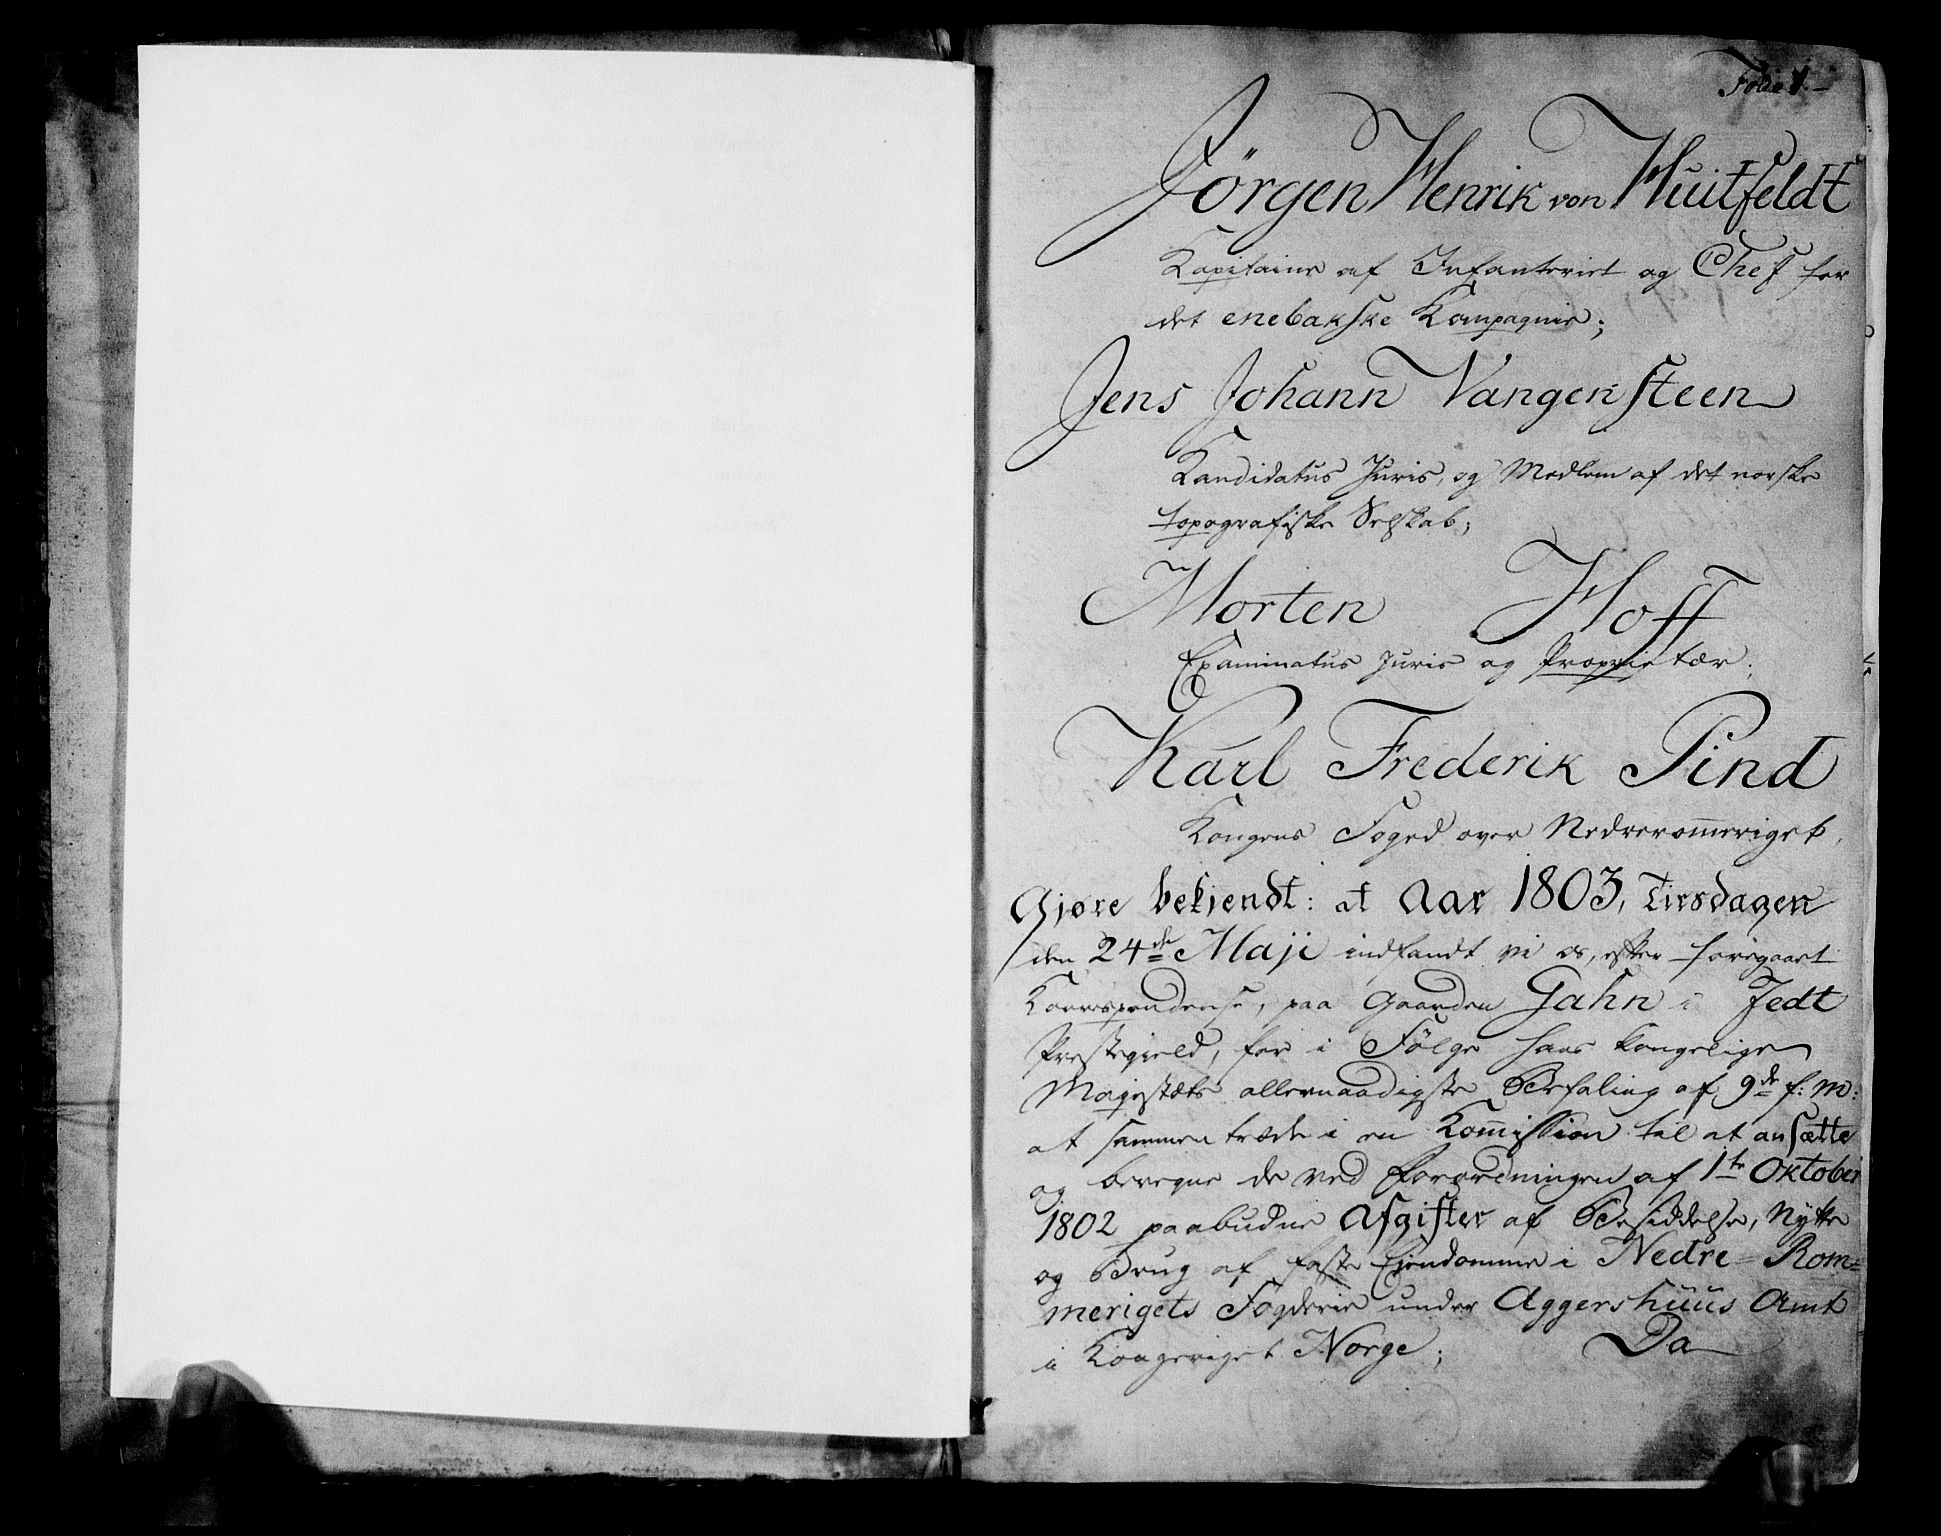 Folio 1.
Jörgen Henrik von Huitfeldt
Kapitaine af Infanteriet og Chef for
det enebakske Kompagnie;
Jens Johann Vangensteen
Kandidatus Juris, og Medlem af det norske
topografiske Selskab;
Morten Hoff
Examinatus Juris og Proprietær.
Karl Frederik Pind
Kongens Foged over Nedreromeriget,
Gjøre bekjendt: at Aar 1803, Tirsdagen
den 24de Maji indfandt vi os, efter foregaaet
Korrespondence, paa Gaarden Gahn i Fedt
Præstegield, for i Følge Hans Kongelige
Majestæts allernaadigste Befaling af 9de f: m:
at sammentræde i en Komission til at ansætte
og beregne de ved Forordningen af 1te Oktober
1802 paabudne Afgifter af Besiddelse, Nytte
og Brug af faste Ejendomme i Nedre-Rom=
merigets Fogderie under Aggershuus Amt
i Kongeriget Norge;
Da